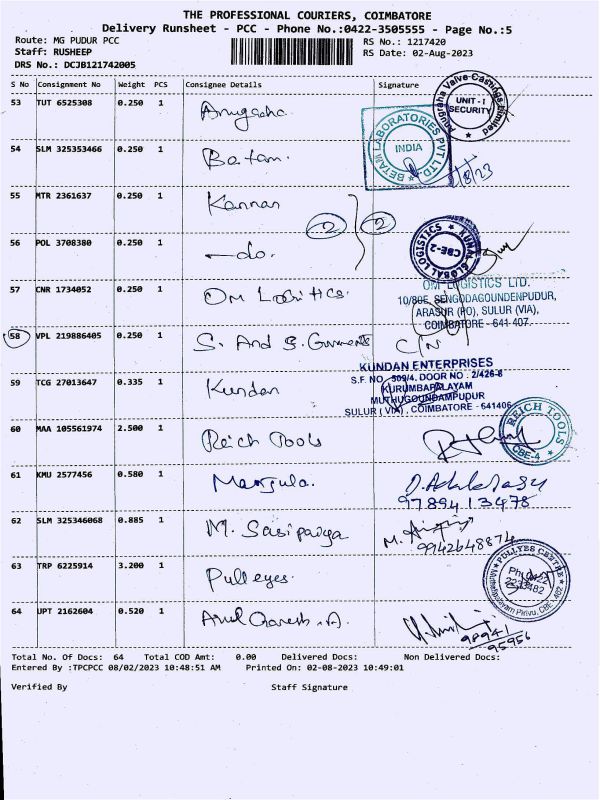 THE PROFESSIONAL COURIERS, COIMBATORE
Delivery Runsheet - PCC - Phone No.:0422-3505555 - Page No.:5
Route: MG PUDUR PCC RS No.: 1217420
Staff: RUSHEEP RS Date: 02-Aug-2023
DRS No.: DCJB121742005
S No Consignment No Weight PCS Consignee Details Signature
53 TUT 6525308 0.250 1 Anugraha Anugraha Valve Castings Limited UNIT - I SECURITY
54 SLM 325353466 0.250 1 Betam. BETAM LABORATORIES PVT LTD INDIA /8/23
55 MTR 2361637 0.250 1 Kannan 2 2
56 POL 3708380 0.250 1 -do. GLOBAL LOGISTICS CBE-2
57 CNR 1734052 0.250 1 Om Logitics. OM LOGISTICS LTD.
10/80E, SENGODAGOUNDENPUDUR,
ARASUR (PO), SULUR (VIA),
COIMBATORE - 641 407.
58 VPL 219886405 0.250 1 S. And S. Garments C/N
KUNDAN ENTERPRISES
S.F. NO. 509/4. DOOR NO. 2/426-8
59 TCG 27013647 0.335 1 Kundan KURUMBAPALAYAM
MUTHUGOUNDAMPUDUR
SULUR ( VIA) , COIMBATORE - 641406
60 MAA 105561974 2.500 1 Reich Tools REICH TOOLS CBE-4
61 KMU 2577456 0.580 1 Manjula.
9789413478
62 SLM 325346068 0.885 1 M. Sasipriya M.
9942648874
63 TRP 6225914 3.200 1 Pulleyes. PULLYES CENTRE
64 UPT 2162604 0.520 1 Arul Ganesh .A
98941
95956
Total No. Of Docs: 64 Total COD Amt: 0.00 Delivered Docs: Non Delivered Docs:
Entered By :TPCPCC 08/02/2023 10:48:51 AM Printed On: 02-08-2023 10:49:01
Verified By Staff Signature